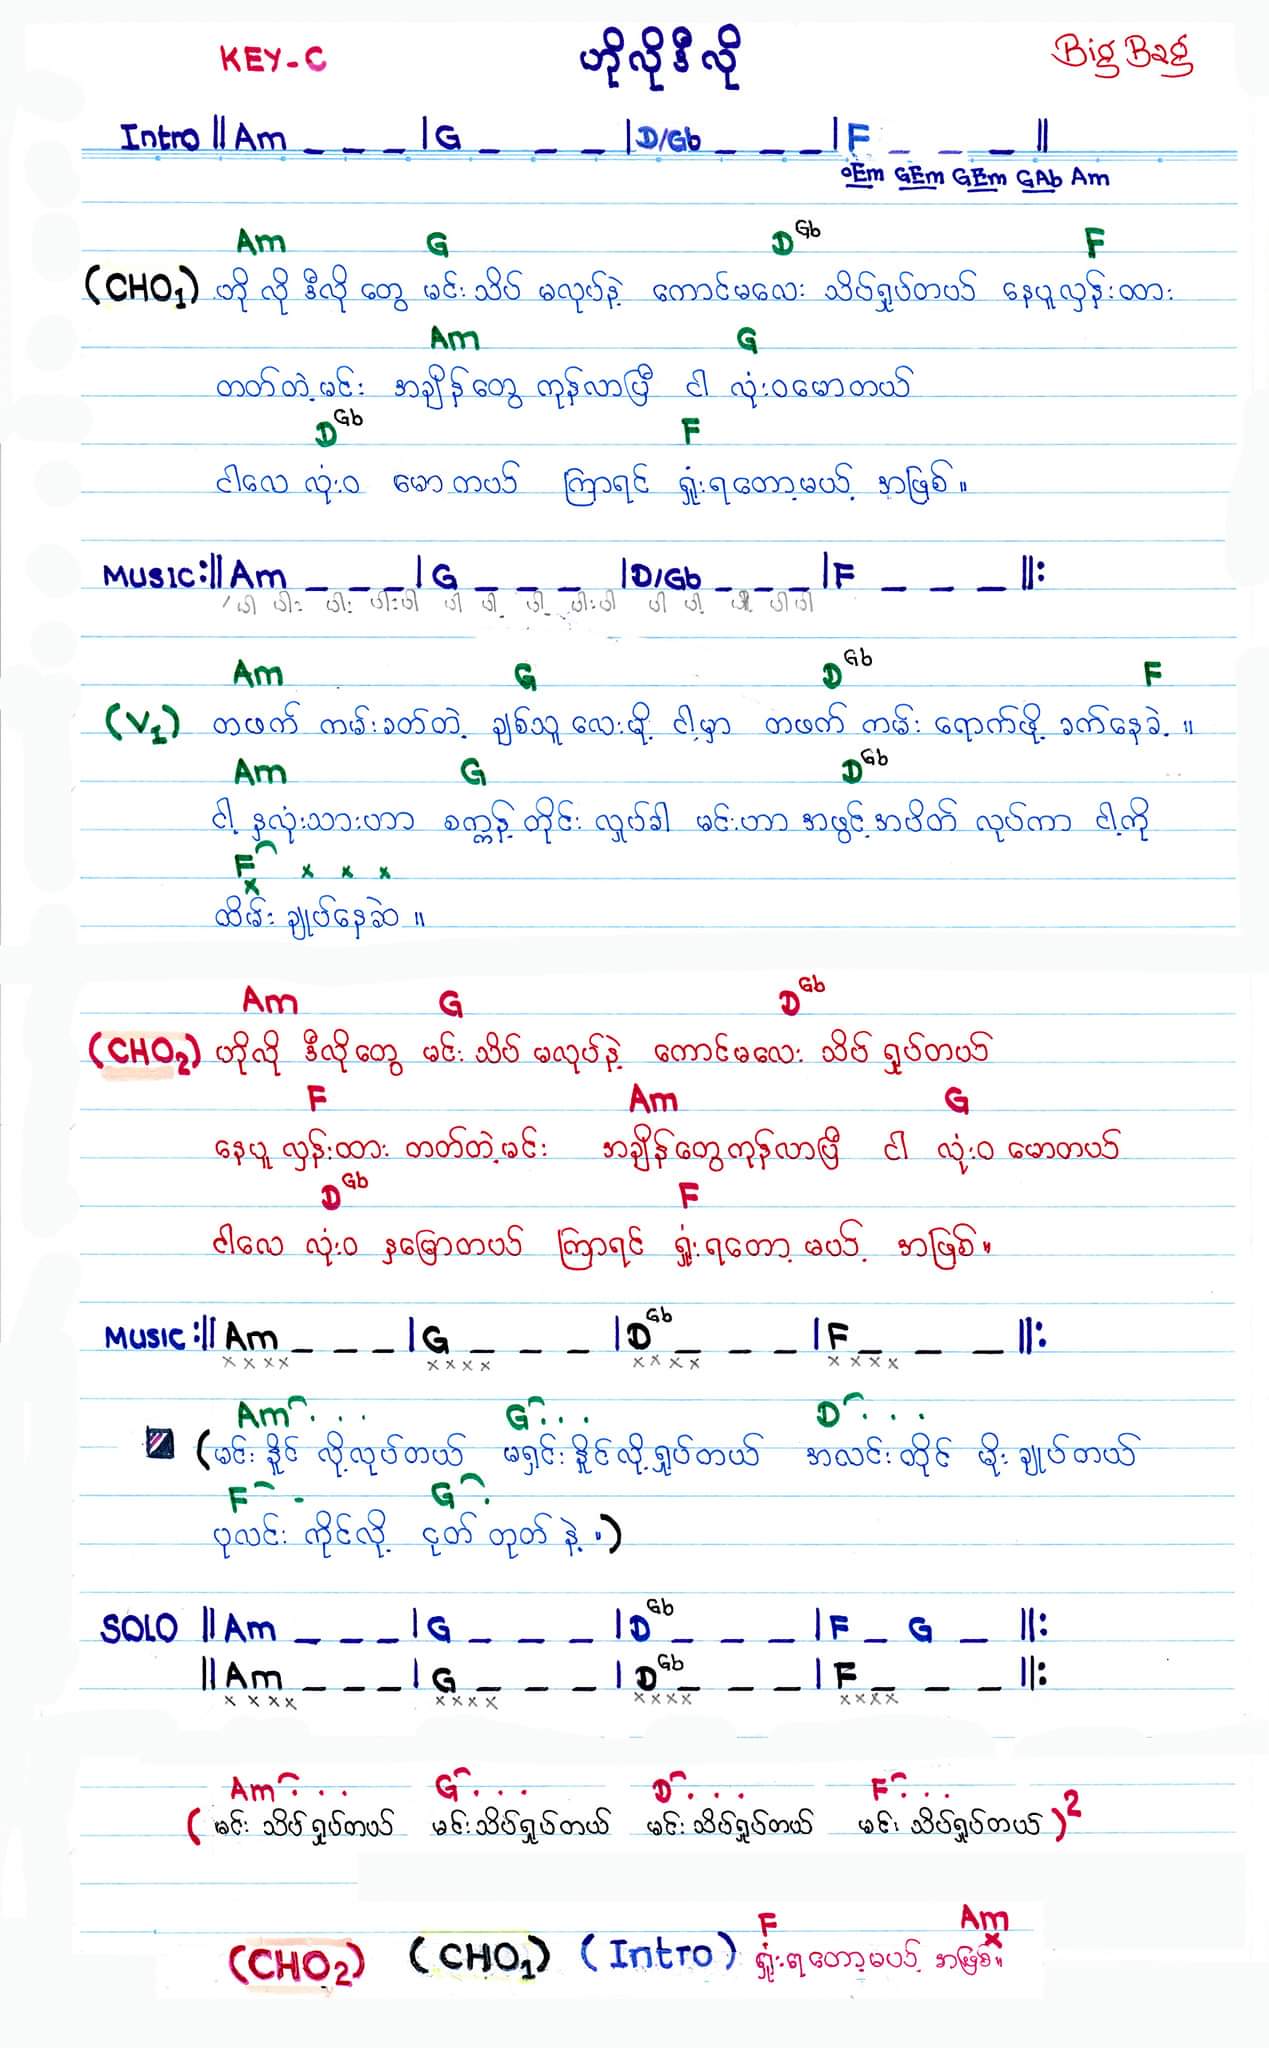 KEY-C ဟိုလိုဒီလို Big Bag
Intro || Am _ _ _ | G _ _ _ | D/Gb _ _ _ | F _ _ _ ||
Em GEm GEm GAb Am
Am G D Gb F
(CHO1) ဟို လို ဒီလို တွေ မင်း သိပ် မလုပ်နဲ့ ကောင်မလေး သိပ်ရှုပ်တယ် နေပူလှန်းထား
Am G
တတ်တဲ့မင်း အချိန်တွေ ကုန်လာပြီ ငါ လုံးဝမောတယ်
D Gb F
ငါလေ လုံးဝ မောတယ် ကြာရင် ရှုံးရတော့မယ့် အဖြစ်။
MUSIC :|| Am _ _ _ | G _ _ _ | D/Gb _ _ _ | F _ _ _ ||:
Am G D Gb F
(V1) တဖက် ကမ်းခတ်တဲ့ ချစ်သူ လေးမို့ ငါ့မှာ တဖက် ကမ်း ရောက်ဖို့ ခက်နေခဲ့ ။
Am G D Gb
ငါ့ နှလုံးသားဟာ စက္ကန့် တိုင်း လှုပ်ခါ မင်းဟာ အဖွင့်အပိတ် လုပ်ကာ ငါ့ကို
F x x x
x
ထိမ်း ချုပ်နေခဲ့ ။
Am G D Gb
(CHO2) ဟိုလို ဒီလိုတွေ မင်း သိပ် မလုပ်နဲ့ ကောင်မလေး သိပ် ရှုပ်တယ်
F Am G
နေပူ လှန်းထား တတ်တဲ့မင်း အချိန်တွေကုန်လာပြီ ငါ လုံးဝ မောတယ်
D Gb F
ငါလေ လုံးဝ နှမြောတယ် ကြာရင် ရှုံးရတော့ မယ့် အဖြစ်။
MUSIC :|| Am _ _ _ | G _ _ _ | D Gb _ _ _ | F _ _ _ ||:
x x x x x x x x x x x x x x x x
Am . . . G . . . D . . .
(မင်း နိူင် လို့လုပ်တယ် မရှင်းနိူင်လို့ရှုပ်တယ် အလင်းတိုင် မိုးချုပ်တယ်
F . G .
ပုလင်း ကိုင်လို့ ငုတ် တုတ် နဲ့ ။)
SOLO || Am _ _ _ | G _ _ _ | D Gb _ _ _ | F _ G _ ||:
|| Am _ _ _ | G _ _ _ | D Gb _ _ _ | F _ _ _ ||:
x x x x x x x x x x x x x x x x
Am . . . G . . . D . . . F . . .
( မင်း သိပ်ရှုပ်တယ် မင်းသိပ်ရှုပ်တယ် မင်းသိပ်ရှုပ်တယ် မင်း သိပ်ရှုပ်တယ် )2
F Am
x
(CHO2) (CHO1) (Intro) ရှုံးရတော့မယ့် အဖြစ်။